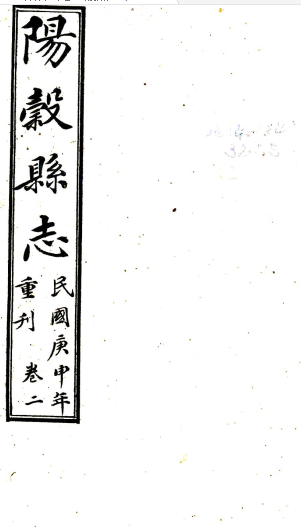 陽穀縣志
民國庚申年
重刋 卷二